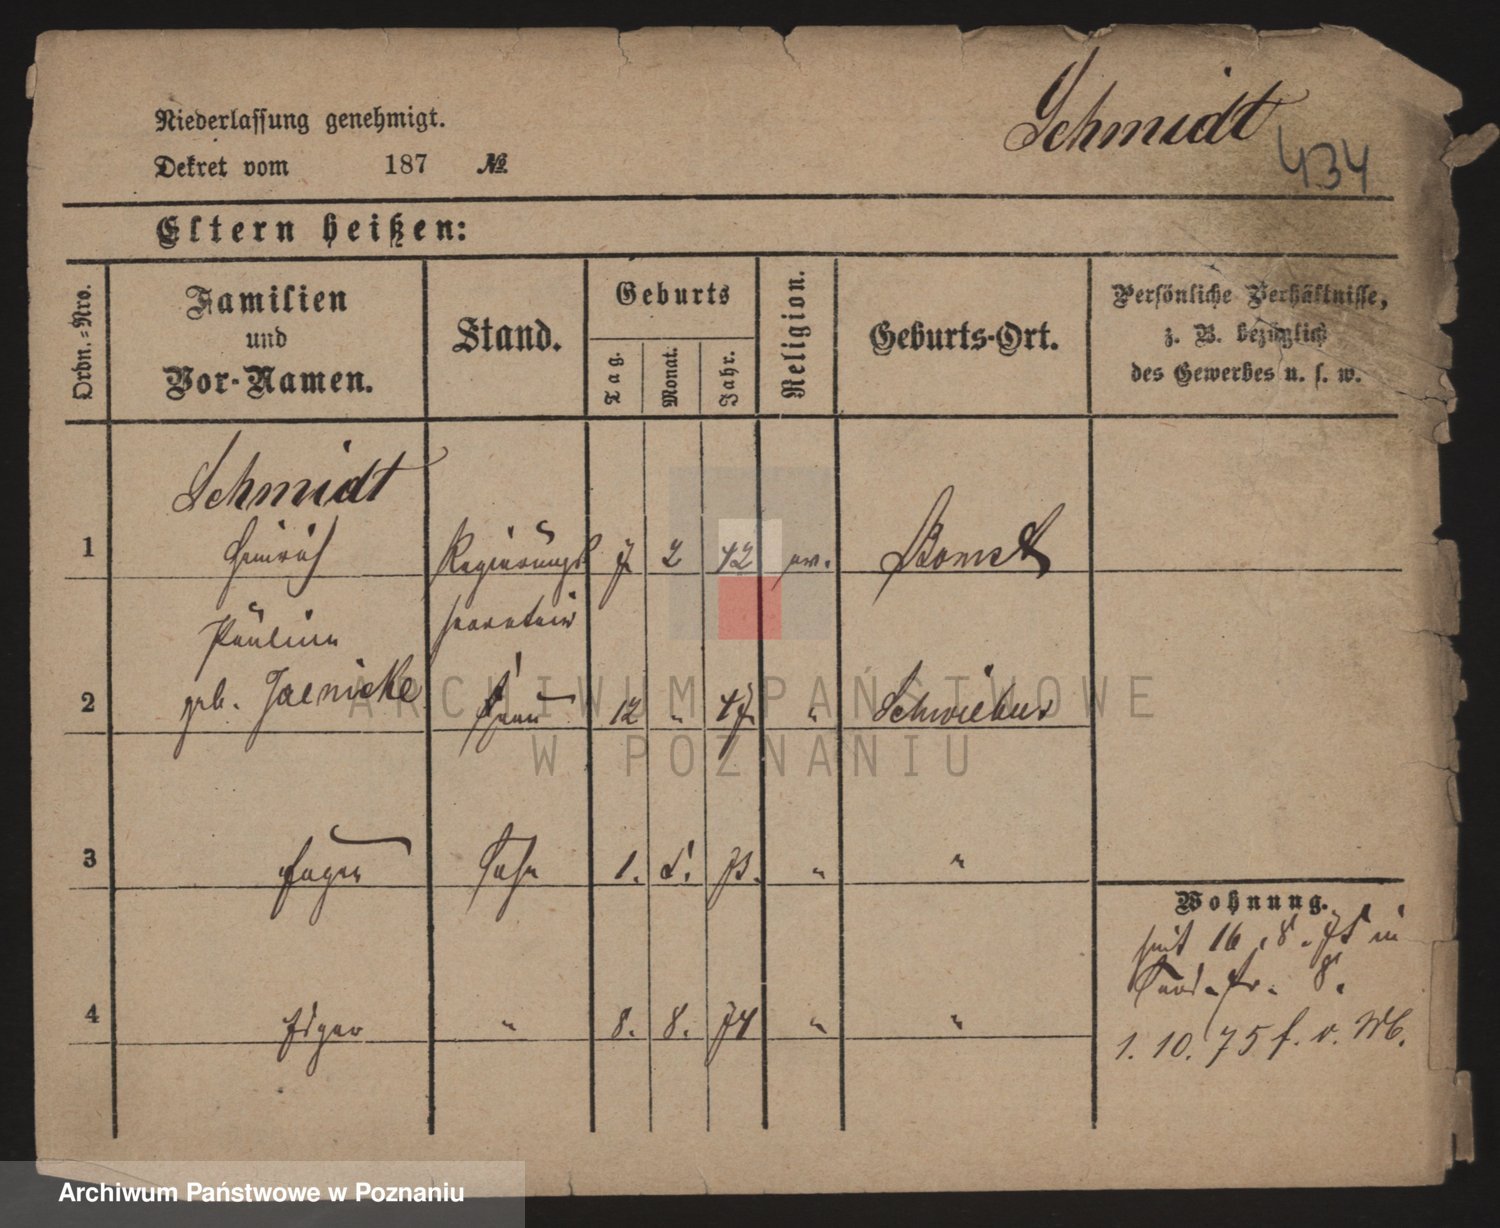 Schmidt
434
Niederlassung genehmigt.
Dekret vom 187 №
Eltern heißen:
Ordn.-Nro.
Familien
und
Vor-Namen.
Stand.
Geburts
Tag.
Monat.
Jahr.
Religion.
Geburts-Ort.
Persönliche Verhältnisse,
z. B. bezüglich
des Gewerbes u. s. w.
Schmidt
1 Heinrich Regierungs 7 2 42 ev. Bomst
Pauline secretair
2 geb. Jaenicke Frau 12 " 47 " Schwiebus
3 Eugen Sohn 1. 5. 73. " "
4 Edgar " 8. 8. 74 " "
Wohnung.
seit 16.8.75 in
8.
1. 10. 75 f. v.
ARCHIWUM PAŃSTWOWE
W POZNANIU
Archiwum Państwowe w Poznaniu